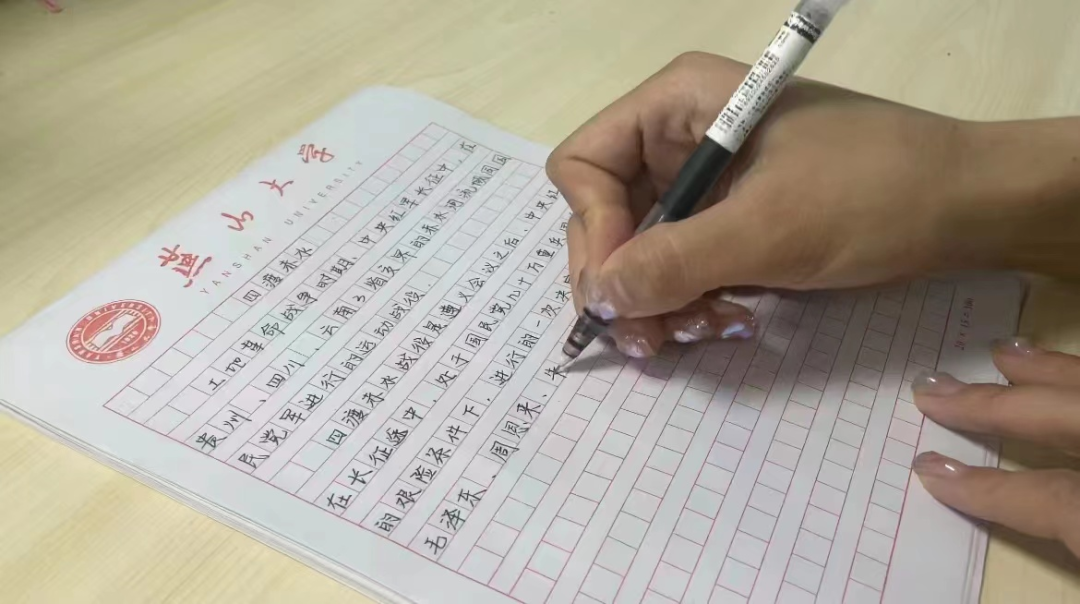 燕山大学
YANSHAN UNIVERSITY
四渡赤水
土地革命战争时期,中央红军长征中,在
贵州、四川、云南3省交界的赤水河流域同国
民党军进行的运动战役.
四渡赤水战役是遵义会议之后,中央红
在长征途中,处于国民党几十万重兵
的艰险条件下,进行的一次决
毛泽东、周恩来、
20×15=300